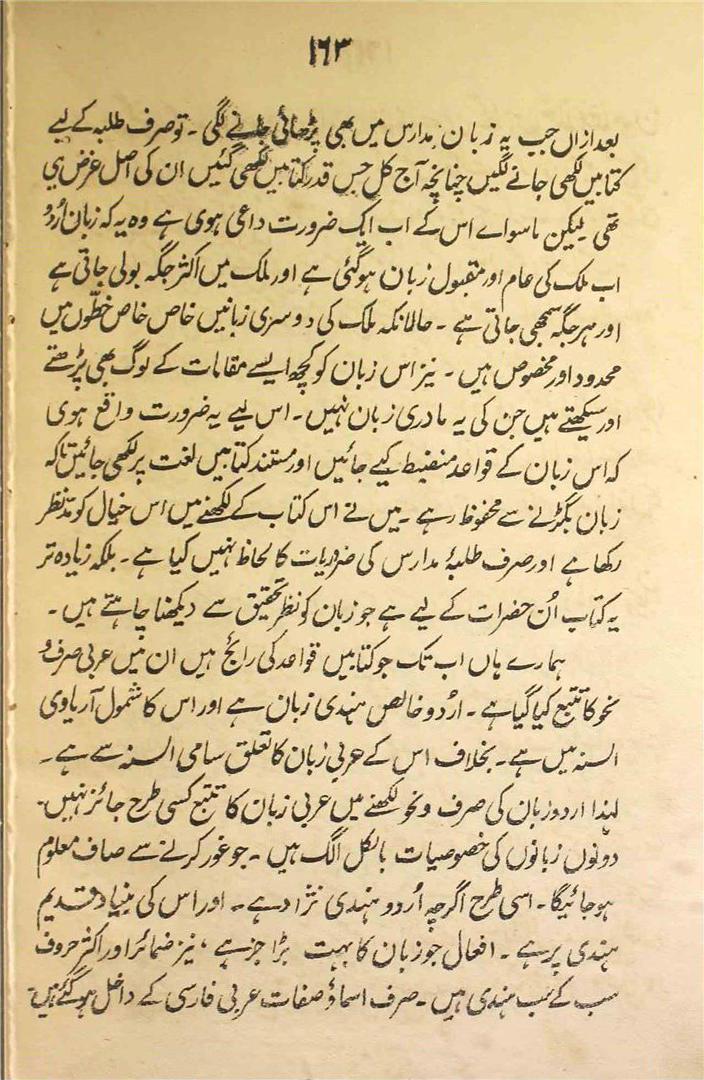 ۱۶۳
بعد ازاں جب یہ زبان مدارس میں بھی پڑھائی جانے لگی ۔ تو صرف طلبہ کے لیے
کتابیں لکھی جانے لگیں چنانچہ آج کل جس قدر کتابیں لکھی گئیں ان کی اصل غرض یہی
تھی لیکن ماسواے اس کے اب ایک ضرورت داعی ہوی ہے وہ یہ کہ زبان اُردُو
اب ملک کی عام اور مقبول زبان ہو گئی ہے اور ملک میں اکثر جگہ بولی جاتی ہے
اور ہر جگہ سمجھی جاتی ہے ۔ حالانکہ ملک کی دوسری زبانیں خاص خاص خطّوں میں
محدود اور مخصوص ہیں ۔ نیز اس زبان کو کچھ ایسے مقامات کے لوگ بھی پڑھتے
اور سیکھتے ہیں جن کی یہ مادری زبان نہیں ۔ اس لیے یہ ضرورت واقع ہوی
کہ اس زبان کے قواعد منضبط کیے جائیں اور مستند کتابیں لغت پر لکھی جائیں تاکہ
زبان بگڑنے سے محفوظ رہے ۔ میں نے اس کتاب کے لکھنے میں اس خیال کو مدّنظر
رکھا ہے اور صرف طلبۂ مدارس کی ضروریات کا لحاظ نہیں کیا ہے ۔ بلکہ زیادہ تر
یہ کتاب اُن حضرات کے لیے ہے جو زبان کو نظرِ تحقیق سے دیکھنا چاہتے ہیں ۔
ہمارے ہاں اب تک جو کتابیں قواعد کی رائج ہیں ان میں عربی صرف و
نحو کا تتبع کیا گیا ہے ۔ اردو خالص ہندی زبان ہے اور اس کا شمول آریاوی
السنہ میں ہے ۔ بخلاف اس کے عربی زبان کا تعلق سامی السنہ سے ہے ۔
لہذا اردو زبان کی صرف و نحو لکھنے میں عربی زبان کا تتبع کسی طرح جائز نہیں ۔
دونوں زبانوں کی خصوصیات بالکل الگ ہیں ۔ جو غور کرنے سے صاف معلوم
ہو جائیگا ۔ اسی طرح اگرچہ اُردو ہندی نژاد ہے ۔ اور اس کی بنیاد قدیم
ہندی پر ہے ۔ افعال جو زبان کا بہت بڑا جز ہے ، نیز ضمائر اور اکثر حروف
سب کے سب ہندی ہیں ۔ صرف اسماؤ صفات عربی فارسی کے داخل ہو گئے ہیں ۔